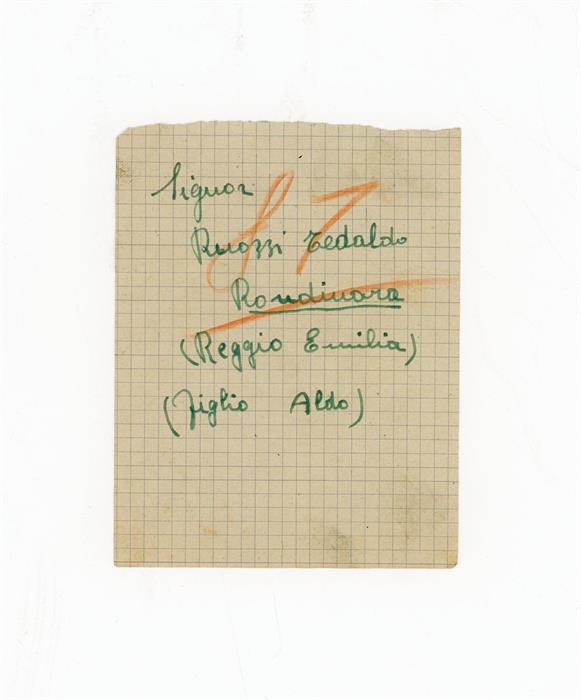 Signor
Ruozzi Tedaldo
Rondinara
(Reggio Emilia)
(Figlio Aldo)